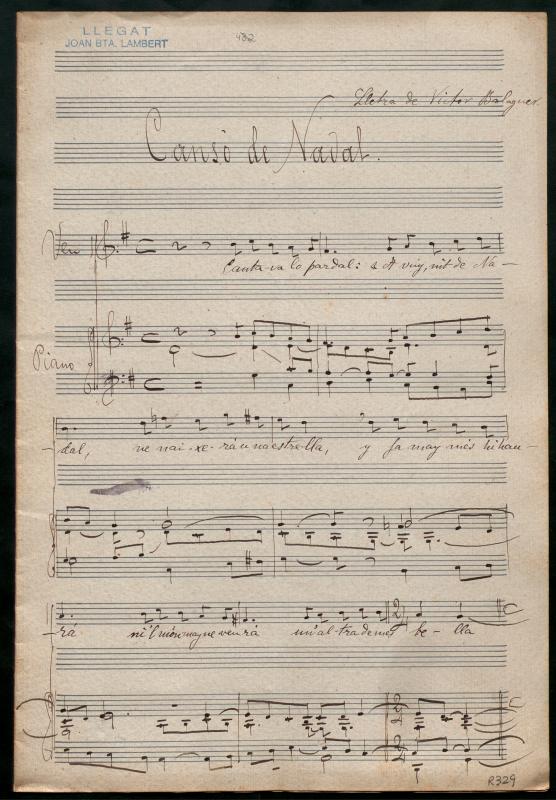 LLEGAT
JOAN BTA. LAMBERT
482
Lletra de Victor Balaguer.
Cansó de Nadal.
Veu
Cantava lo pardal: & A vuy, nit de Na-
Piano
-dal, ne nai-xe-rá una estre-lla, y ja may més hi hau-
-rá ni'l món may ne veurá un'al-tra de més be-lla
R329